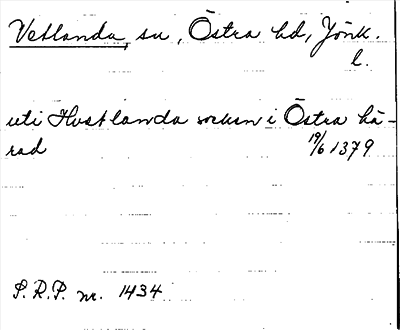 Vetlanda, sn, Östra hd, Jönk.
l.
uti Hvetlanda socken i Östra hä-
rad 19/6 1379
S.R.P. nr. 1434